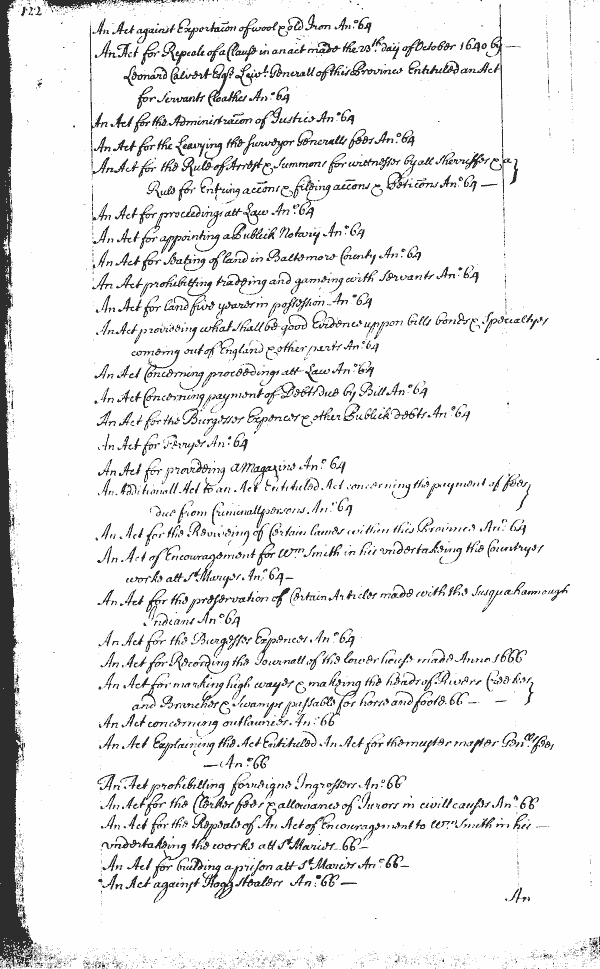 122
An Act against Exportac̃on of wool & old Iron An.º 64
An Act for Repeale of a Clause in an act made the 23th day of October 1640 by —
Leonard Calvert Esqr Leivt. Generall of this Province Entituled an Act
for Servants Cloathes An.º 64
An Act for the Administrac̃on of Justice An.º 64
An Act for the Leavying the Surveyor Generalls fees An.º 64
An Act for the Rule of Arrest & Summons for wittnesses by all Sherriffes & a }
Rule for Entring acc̃ons & fileing acc̃ons & Petic̃ons An.º 64 —
An Act for proceedings att Law An.º 64
An Act for appointing a Publick Notary An.º 64
An Act for Seating of land in Baltemore County An.º 64
An Act prohibitting tradeing and gameing with Servants An.º 64
An Act for land five yeares in possession An.º 64
An Act provideing what shall be good Evidence uppon bills bonds & Specialtyes
comeing out of England & other parts An.º 64
An Act Concerning proceedings att Law An.º 64
An Act Concerning payment of Debts due by Bill An.º 64
An Act for the Burgesses Expences & other Publick debts An.º 64
An Act for Ferryes An.º 64
An Act for provideing a Magazine An.º 64
An Additionall Act to an Act Entituled Act concerning the payment of fees }
due from Criminall persons An.º 64
An Act for the Reviveing of Certain lawes within this Province An.º 64
An Act of Encouragement for Wm Smith in his undertakeing the Countryes
works att St. Maryes An.º 64 —
An Act for the preservation of Certain Articles made with the Susquahannough
Indians An.º 64
An Act for the Burgesses Expences An.º 64
An Act for Recording the Journall of the lower house made Anno 1666
An Act for marking high wayes & makeing the heads of Rivers Creekes }
and Branches & Swamps passable for horse and foote 66 — —
An Act concerning outlawries An.º 66
An Act Explaining the Act Entituled An Act for the muster master Genlls fees
— An.º 66
An Act prohibitting forreigne Ingrossers An.º 66
An Act for the Clerkes fees & allowance of Jurors in civill causes An.º 66
An Act for the Repeale of An Act of Encouragement to Wm. Smith in his —
undertakeing the works att St. Maries 66 —
An Act for building a prison att St. Maries An.º 66 —
An Act against Hogg Stealers An.º 66 —
An